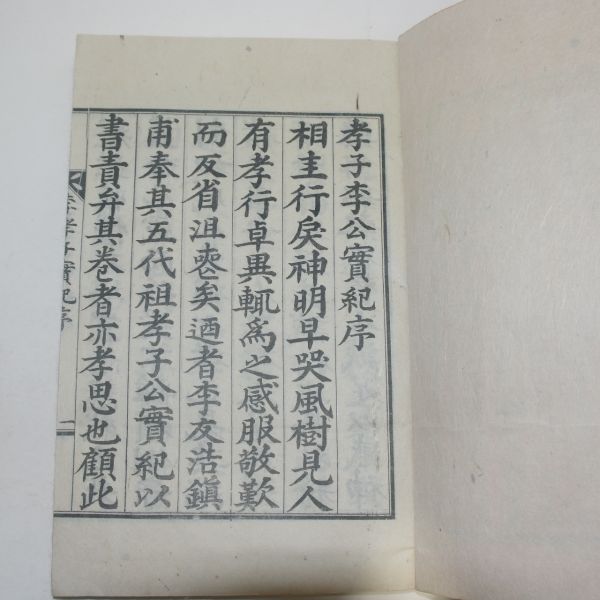 孝子李公實紀序
相圭行戾神明早哭風樹見人
有孝行卓異輒爲之感服敬歎
而反省沮喪矣迺者李友浩鎭
甫奉其五代祖孝子公實紀以
書責弁其卷者亦孝思也顧此
李孝子實紀序
一